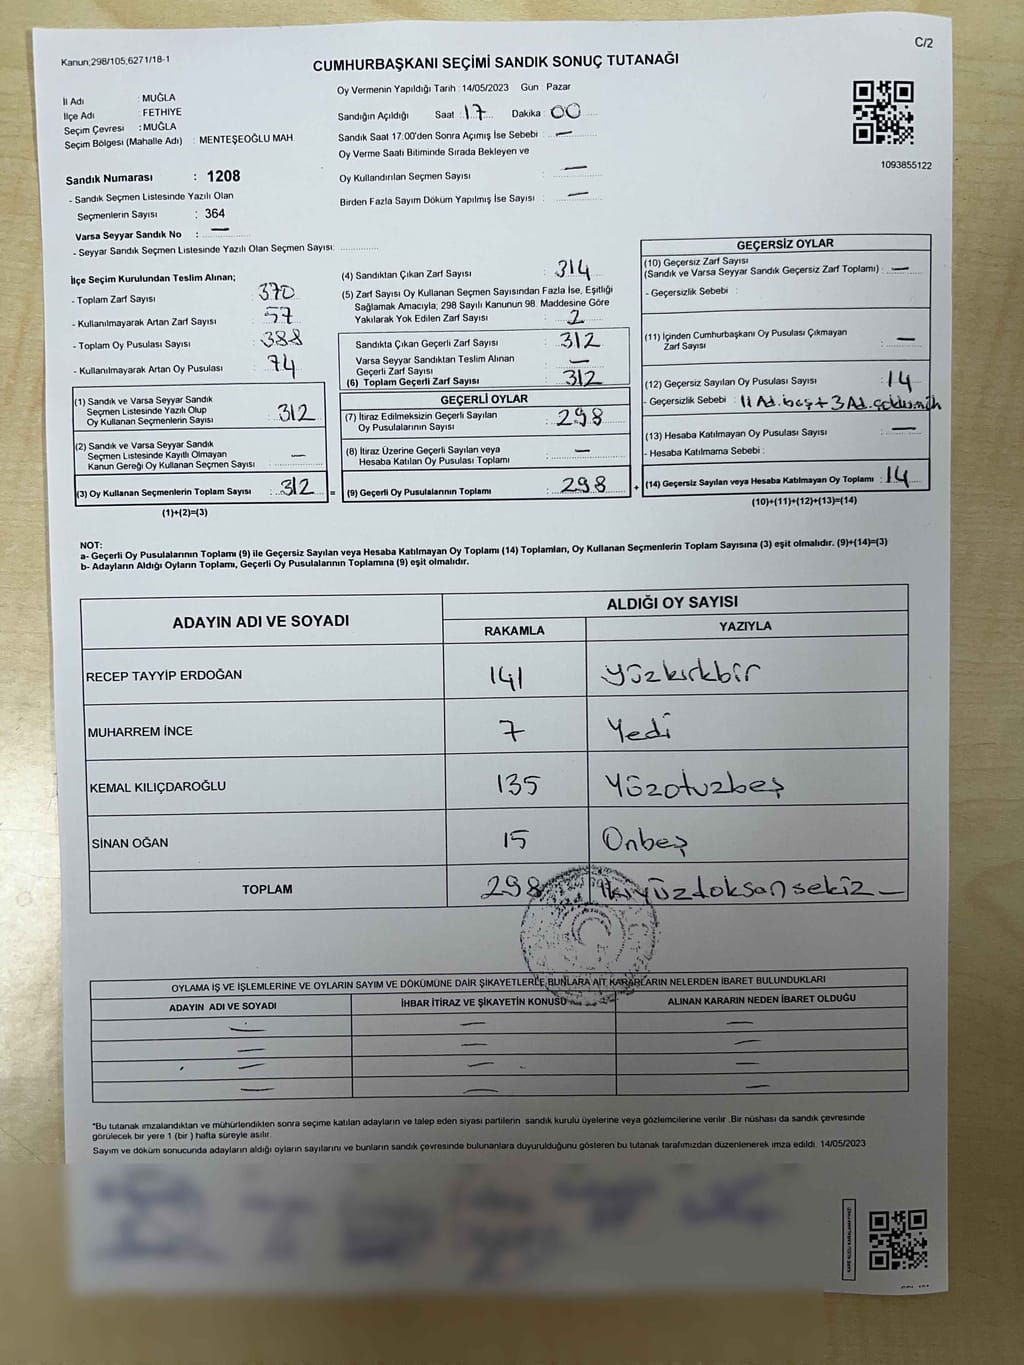 C/2
Kanun;298/105;6271/18-1
CUMHURBAŞKANI SEÇİMİ SANDIK SONUÇ TUTANAĞI
İl Adı : MUĞLA
İlçe Adı : FETHİYE
Seçim Çevresi : MUĞLA
Seçim Bölgesi (Mahalle Adı) : MENTEŞEOĞLU MAH.
Sandık Numarası : 1208
- Sandık Seçmen Listesinde Yazılı Olan
Seçmenlerin Sayısı : 364
Varsa Seyyar Sandık No : —
- Seyyar Sandık Seçmen Listesinde Yazılı Olan Seçmen Sayısı:
Oy Vermenin Yapıldığı Tarih : 14/05/2023 Gün : Pazar
Sandığın Açıldığı Saat : 17 Dakika : 00
Sandık Saat 17:00'den Sonra Açımış İse Sebebi : —
Oy Verme Saati Bitiminde Sırada Bekleyen ve
Oy Kullandırılan Seçmen Sayısı : —
Birden Fazla Sayım Döküm Yapılmış İse Sayısı : —
1093855122
İlçe Seçim Kurulundan Teslim Alınan;
- Toplam Zarf Sayısı : 370
- Kullanılmayarak Artan Zarf Sayısı : 57
- Toplam Oy Pusulası Sayısı : 388
- Kullanılmayarak Artan Oy Pusulası : 74
(1) Sandık ve Varsa Seyyar Sandık
Seçmen Listesinde Yazılı Olup
Oy Kullanan Seçmenlerin Sayısı : 312
(2) Sandık ve Varsa Seyyar Sandık
Seçmen Listesinde Kayıtlı Olmayan
Kanun Gereği Oy Kullanan Seçmen Sayısı : —
(3) Oy Kullanan Seçmenlerin Toplam Sayısı : 312
(1)+(2)=(3)
=
(4) Sandıktan Çıkan Zarf Sayısı : 314
(5) Zarf Sayısı Oy Kullanan Seçmen Sayısından Fazla İse, Eşitliği
Sağlamak Amacıyla; 298 Sayılı Kanunun 98. Maddesine Göre
Yakılarak Yok Edilen Zarf Sayısı : 2
Sandıkta Çıkan Geçerli Zarf Sayısı : 312
Varsa Seyyar Sandıktan Teslim Alınan
Geçerli Zarf Sayısı : —
(6) Toplam Geçerli Zarf Sayısı : 312
GEÇERLİ OYLAR
(7) İtiraz Edilmeksizin Geçerli Sayılan
Oy Pusulalarının Sayısı : 298
(8) İtiraz Üzerine Geçerli Sayılan veya
Hesaba Katılan Oy Pusulası Toplamı : —
(9) Geçerli Oy Pusulalarının Toplamı : 298
+
GEÇERSİZ OYLAR
(10) Geçersiz Zarf Sayısı
(Sandık ve Varsa Seyyar Sandık Geçersiz Zarf Toplamı) : —
- Geçersizlik Sebebi :
(11) İçinden Cumhurbaşkanı Oy Pusulası Çıkmayan
Zarf Sayısı : —
(12) Geçersiz Sayılan Oy Pusulası Sayısı : 14
- Geçersizlik Sebebi : 11 Ad. boş + 3 Ad.
(13) Hesaba Katılmayan Oy Pusulası Sayısı : —
- Hesaba Katılmama Sebebi :
(14) Geçersiz Sayılan veya Hesaba Katılmayan Oy Toplamı : 14
(10)+(11)+(12)+(13)=(14)
NOT:
a- Geçerli Oy Pusulalarının Toplamı (9) ile Geçersiz Sayılan veya Hesaba Katılmayan Oy Toplamı (14) Toplamları, Oy Kullanan Seçmenlerin Toplam Sayısına (3) eşit olmalıdır. (9)+(14)=(3)
b- Adayların Aldığı Oyların Toplamı, Geçerli Oy Pusulalarının Toplamına (9) eşit olmalıdır.
ADAYIN ADI VE SOYADI ALDIĞI OY SAYISI
RAKAMLA YAZIYLA
RECEP TAYYİP ERDOĞAN 141 Yüzkırkbir
MUHARREM İNCE 7 Yedi
KEMAL KILIÇDAROĞLU 135 Yüzotuzbeş
SİNAN OĞAN 15 Onbeş
TOPLAM 298 İkiyüzdoksansekiz —
OYLAMA İŞ VE İŞLEMLERİNE VE OYLARIN SAYIM VE DÖKÜMÜNE DAİR ŞİKAYETLERLE BUNLARA AİT KARARLARIN NELERDEN İBARET BULUNDUKLARI
ADAYIN ADI VE SOYADI İHBAR İTİRAZ VE ŞİKAYETİN KONUSU ALINAN KARARIN NEDEN İBARET OLDUĞU
— — —
— — —
— — —
— — —
*Bu tutanak imzalandıktan ve mühürlendikten sonra seçime katılan adayların ve talep eden siyasi partilerin sandık kurulu üyelerine veya gözlemcilerine verilir .Bir nüshası da sandık çevresinde
görülecek bir yere 1 (bir ) hafta süreyle asılır.
Sayım ve döküm sonucunda adayların aldığı oyların sayılarını ve bunların sandık çevresinde bulunanlara duyurulduğunu gösteren bu tutanak tarafımızdan düzenlenerek imza edildi. 14/05/2023
KARE KODU KARALAMAYINIZ!